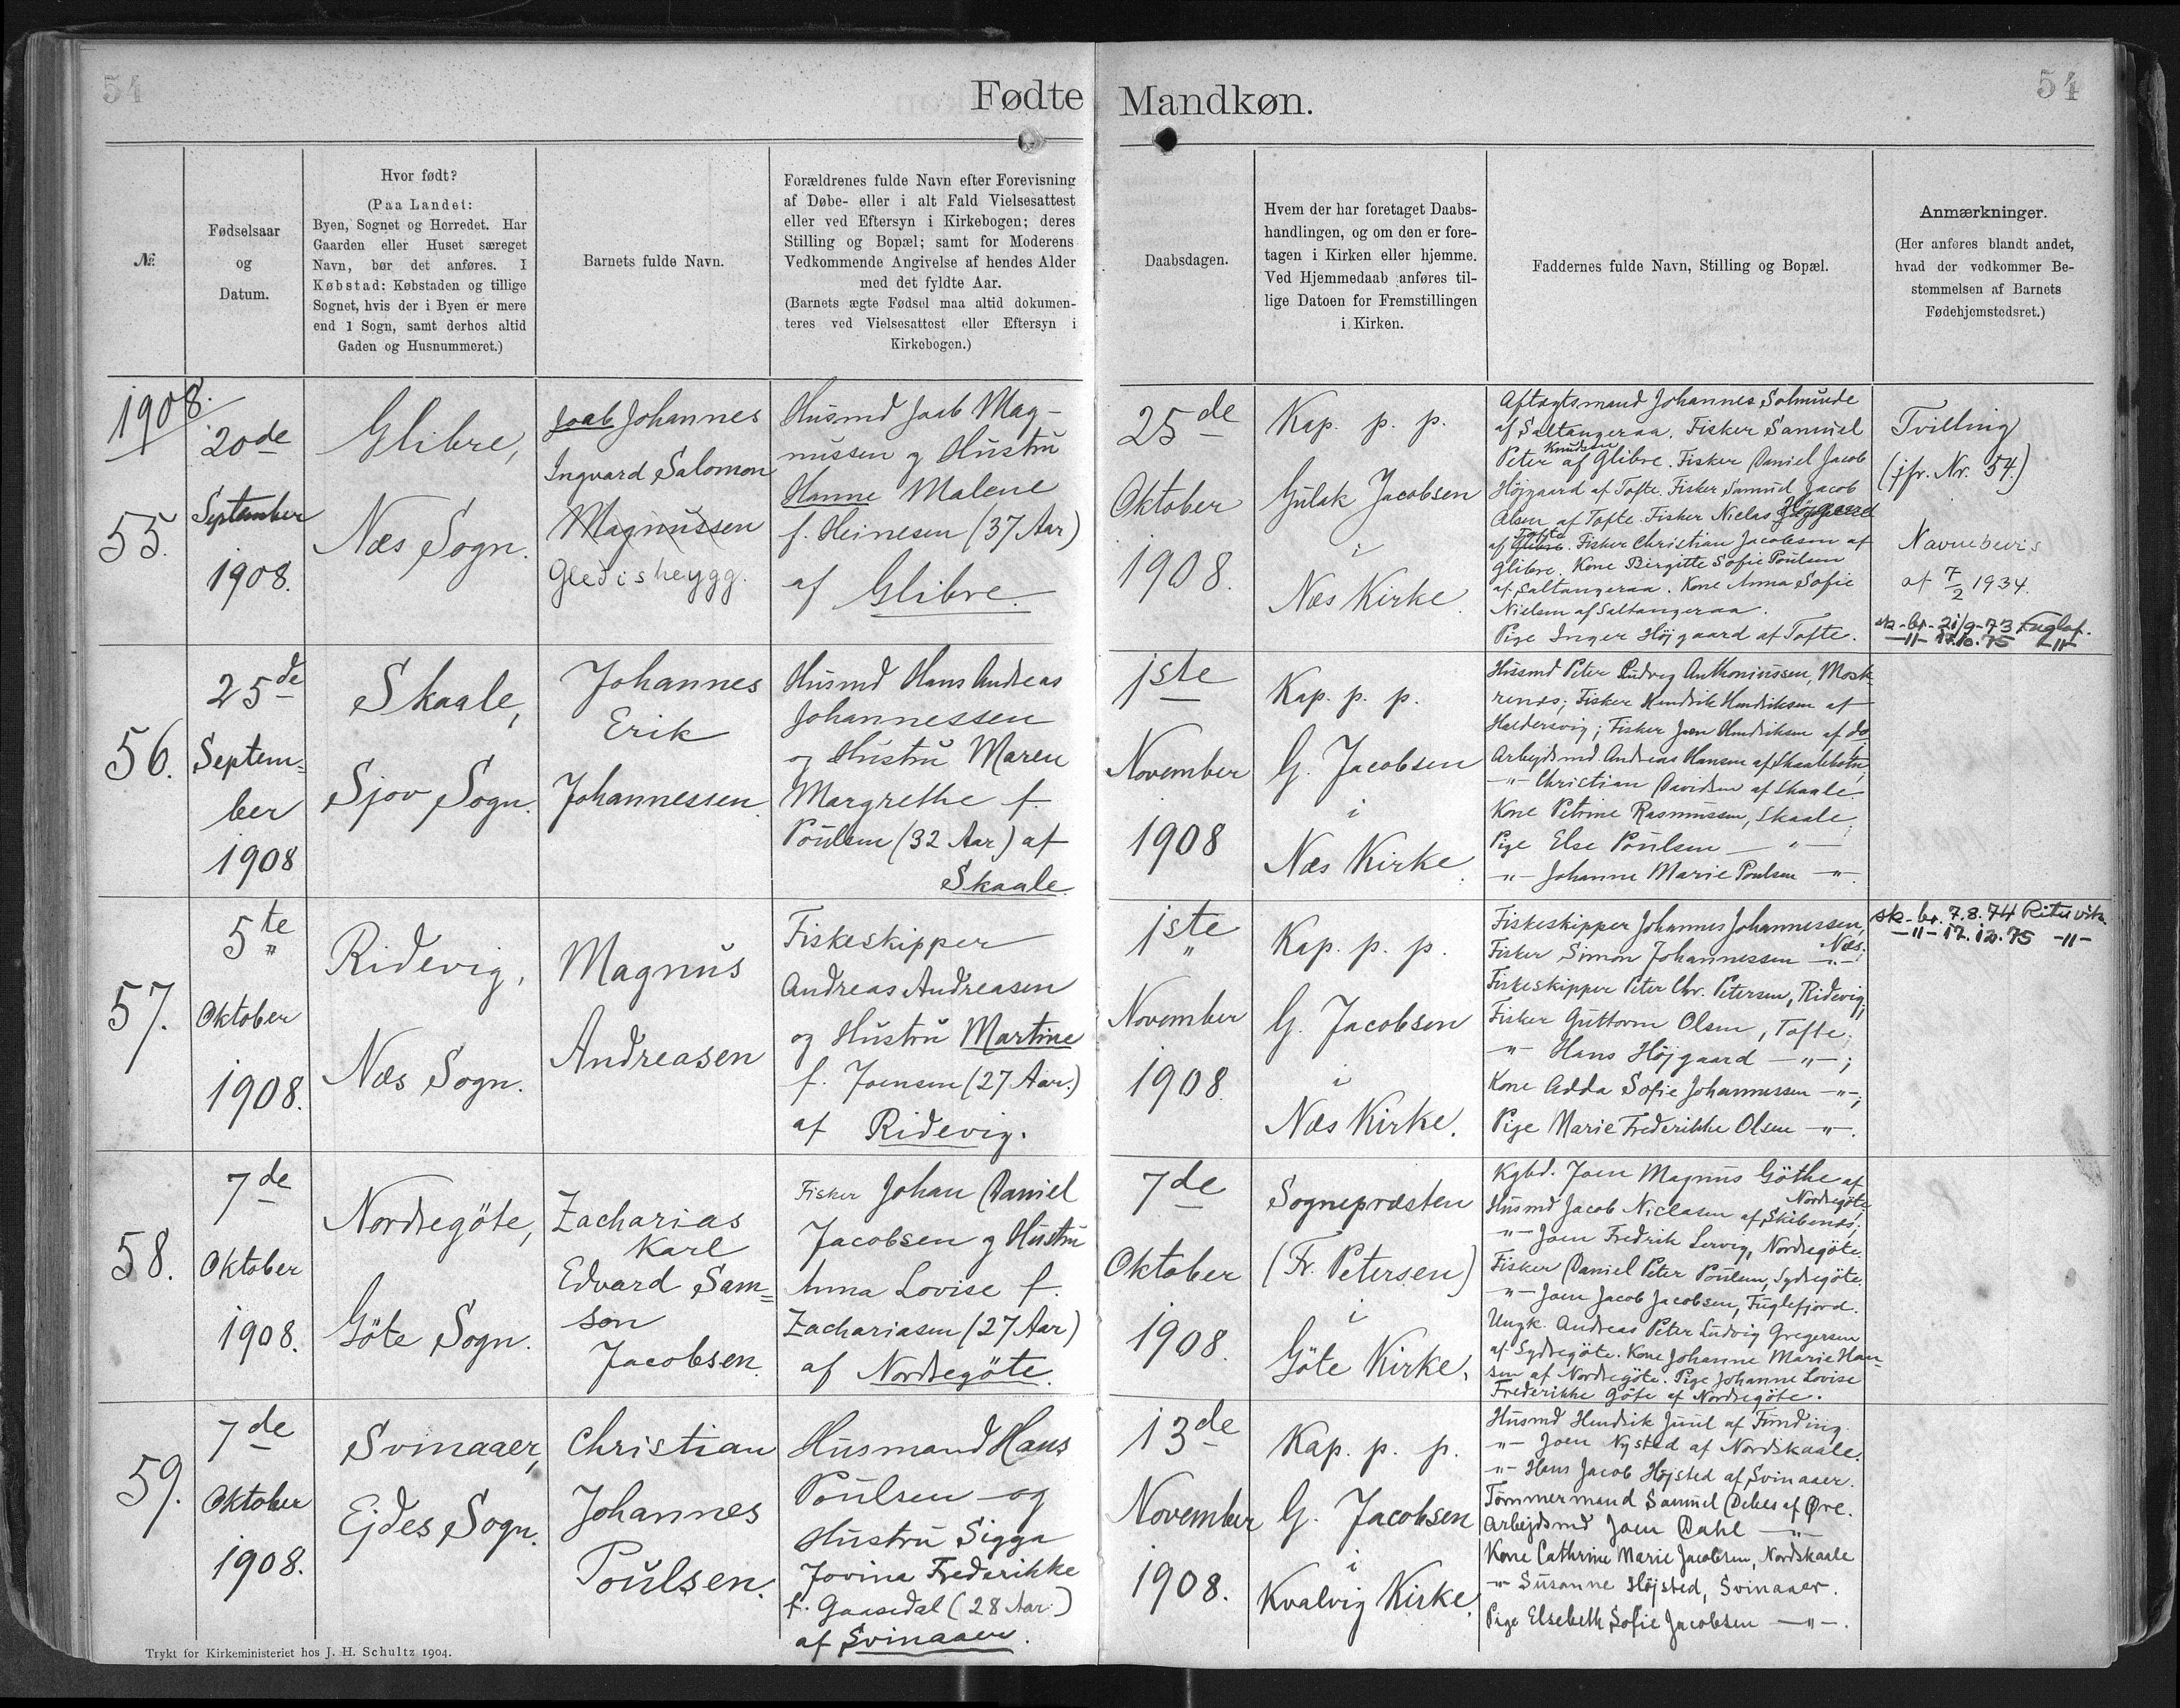 54
Fødte
Mandkøn.
54
№
Fødselsaar
og
Datum.
Hvor født?
(Paa Landet:
Byen, Sognet og Herredet. Har
Gaarden eller Huset særeget
Navn, bør det anføres. I
Købstad: Købstaden og tillige
Sognet, hvis der i Byen er mere
end 1 Sogn, samt derhos altid
Gaden og Husnummeret.)
Barnets fulde Navn.
Forældrenes fulde Navn efter Forevisning
af Døbe- eller i alt Fald Vielsesattest
eller ved Eftersyn i Kirkebogen; deres
Stilling og Bopæl; samt for Moderens
Vedkommende Angivelse af hendes Alder
med det fyldte Aar.
(Barnets ægte Fødsel maa altid dokumen-
teres ved Vielsesattest eller Eftersyn i
Kirkebogen.)
Daabsdagen.
Hvem der har foretaget Daabs-
handlingen, og om den er fore-
tagen i Kirken eller hjemme.
Ved Hjemmedaab anføres til-
lige Datoen for Fremstillingen
i Kirken.
Faddernes fulde Navn, Stilling og Bopæl.
Anmærkninger.
(Her anføres blandt andet,
hvad der vedkommer Be-
stemmelsen af Barnets
Fødehjemstedsret.)
1908.
55.
20de
September
1908.
Glibre,
Næs Sogn.
Joab Johannes
Ingvard Salomon
Magnussen
Gledisheygg.
Husmd Joab Mag-
nussen og Hustru
Hanne Malene
f. Heinesen (37 Aar)
af Glibre.
25de
Oktober
1908.
Kap. p. p.
Gulak Jacobsen
i
Næs Kirke.
Aftægtsmand Johannes Solmunde
af Saltangeraa. Fisker Samuel
Knudsen
Peter af Glibre. Fisker Daniel Jacob
Højgaard af Tofte. Fisker Samuel Jacob
Olsen af Tofte. Fisker Niclas Højgaard
Tofte
af Glibre. Fisker Christian Jacobsen af
Glibre. Kone Birgitte Sofie Poulsen
af Saltangeraa. Kone Anna Sofie
Nielsen af Saltangeraa.
Pige Inger Højgaard af Tofte.
Tvilling
(jfr. Nr. 54.)
Navnebevis
af 7/2 1934.
sk-br-21/9-73 Fuglaf.
-"- 17.10.75 -"-
56.
25de
Septem=
ber
1908
Skaale,
Sjov Sogn.
Johannes
Erik
Johannessen.
Husmd Hans Andreas
Johannessen
og Hustru Maren
Margrethe f.
Poulsen (32 Aar) af
Skaale.
1ste
November
1908
Kap. p. p.
G. Jacobsen
i
Næs Kirke.
Husmd Peter Ludvig Anthoniussen, Mosk-
renæs; Fisker Hendrik Hendriksen af
Haldersvig; Fisker Joen Hendriksen af do
Arbejdsmd. Andreas Hansen af Skaalebotn;
-"- Christian Davidsen af Skaale.
Kone Petrine Rasmussen, Skaale;
Pige Else Poulsen -"-
-"- Johanne Marie Poulsen -"-.
57.
5te
Oktober
1908.
Ridevig,
Næs Sogn.
Magnus
Andreasen
Fiskeskipper
Andreas Andreasen
og Hustru Martine
f. Joensen (27 Aar.)
af Ridevig.
1ste
November
1908.
Kap. p. p.
G. Jacobsen
i
Næs Kirke.
Fiskeskipper Johannes Johannessen,
Næs.
Fisker Simon Johannessen -"-
Fiskeskipper Peter Chr. Petersen, Ridevig;
Fisker Guttorm Olsen, Tofte;
-"- Hans Højgaard -"-;
Kone Adda Sofie Johannessen -"-;
Pige Marie Frederikke Olsen -"-.
sk-br. 7.8.74 Rituvík
-"- 17.12.75 -"-
58.
7de
Oktober
1908.
Nordregöte,
Göte Sogn.
Zacharias
Karl
Edvard Sam=
son
Jacobsen.
Fisker Johan Daniel
Jacobsen og Hustru
Anna Lovise f.
Zachariasen (27 Aar)
af Nordregöte.
7de
Oktober
1908.
Sognepræsten
(Fr. Petersen)
i
Göte Kirke.
Kgbd. Joen Magnus Göthe af
Nordregöte
Husmd Jacob Niclasen af Skibenæs;
-"- Joen Fredrik Lervig, Nordregöte.
Fisker Daniel Peter Poulsen, Sydregöte.
-"- Joen Jacob Jacobsen, Fuglefjord.
Ungk. Andreas Peter Ludvig Gregersen
af Sydregöte. Kone Johanne Marie Han-
sen af Nordregöte. Pige Johanne Lovise
Frederikke Göte af Nordregöte.
59.
7de
Oktober
1908.
Svinaaer,
Ejdes Sogn.
Christian
Johannes
Poulsen.
Husmand Hans
Poulsen og
Hustru Sigga
Jovina Frederikke
f. Gaasedal (28 Aar.)
af Svinaaer.
13de
November
1908.
Kap. p. p.
G. Jacobsen
i
Kvalvig Kirke.
Husmd Hendrik Juul af Funding.
-"- Joen Nysted af Nordskaale.
-"- Hans Jacob Højsted af Svinaaer.
Tømmermand Samuel Debes af Øre.
Arbejdsmd Joen Dahl -"-
Kone Cathrine Marie Jacobsen, Nordskaale
-"- Susanne Højsted, Svinaaer.
Pige Elsebeth Sofie Jacobsen -"-.
Trykt for Kirkeministeriet hos J. H. Schultz 1904.